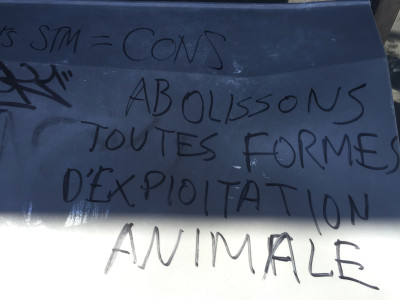 STM = CONS
ABOLISSONS
TOUTES FORMES
D'EXPIOITATION
ANIMALE